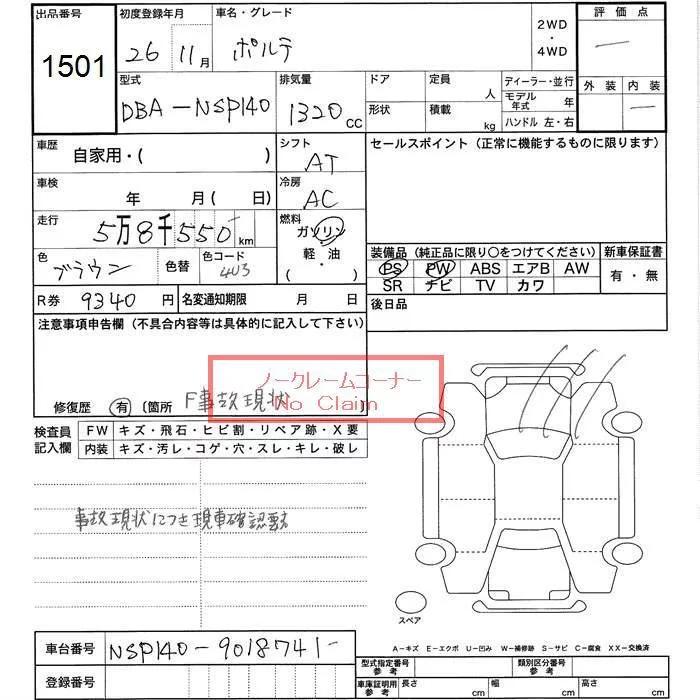 出品番号
1501
初度登録年月
26 11月
車名・グレード
ポルテ
2WD
・
4WD
評価点
―
外装 内装
―
型式
DBA-NSP140
排気量
1320cc
ドア
形状
定員
人
積載
kg
ディーラー・並行
モデル年式 年
ハンドル 左・右
車歴
自家用・( )
シフト
AT
セールスポイント(正常に機能するものに限ります)
車検
年 月(日)
冷房
AC
走行
5万8千550km
燃料
ガソリン
軽・油
( )
色
ブラウン
色替
色コード
4U3
装備品(純正品に限り○をつけてください)
新車保証書
PS PW ABS エアB AW
SR ナビ TV カワ
有・無
R券 9340円
名変通知期限 月 日
後日品
注意事項申告欄(不具合内容等は具体的に記入して下さい)
ノークレームコーナー
No Claim
修復歴 有 〔箇所 F事故現状
検査員記入欄
FW キズ・飛石・ヒビ割・リペア跡・X要
内装 キズ・汚レ・コゲ・穴・スレ・キレ・破レ
事故現状につき現車確認要す
スペア
A-キズ E-エクボ U-凹み W-補修跡 S-サビ C-腐食 XX-交換済
車台番号 NSP140-9018741-
登録番号
型式指定番号 参考
類別区分番号 参考
車庫証明用 参考
長さ cm 幅 cm 高さ cm